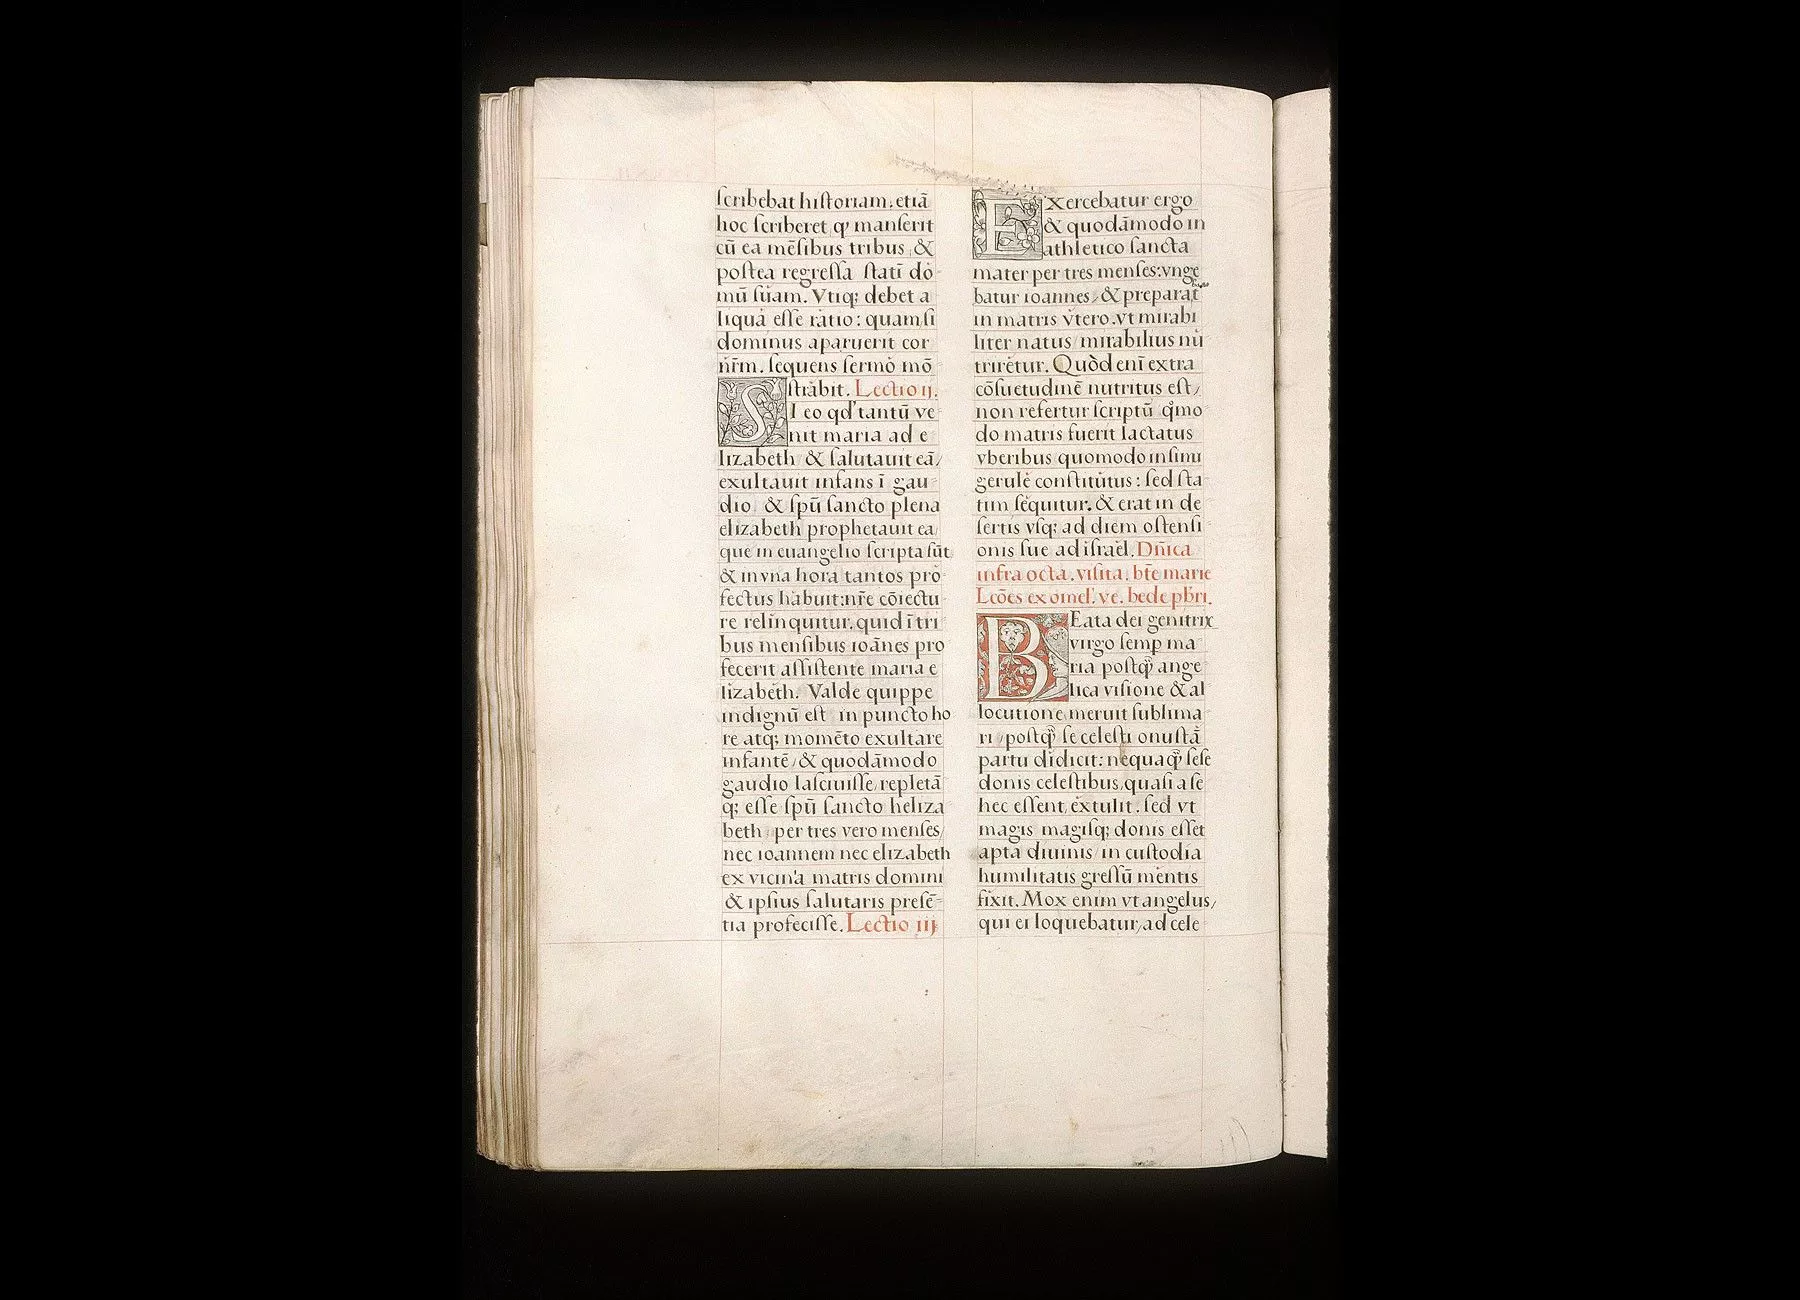 scribebat historiam: etiā
hoc scriberet ꝙ manserit
cū ea mēsibus tribus, &
postea regressa statī do-
mū suam. Vtiq; debet a
liqua esse ratio: quam si
dominus aparuerit cor
nr̄m. sequens sermo mō
strabit. Lectio ij.
SI eo qđ tantū ve-
nit maria ad e
lizabeth & salutauit eā,
exultauit infans ī gau-
dio & spū sancto plena
elizabeth prophetauit ea
que in euangelio scripta sūt
& in vna hora tantos pro-
fectus habuit: nr̄e cōiectu-
re relinquitur. quid ī tri
bus mensibus ioānes pro
fecerit assistente maria e
lizabeth. Valde quippe
indignū est in puncto ho
re atq; momēto exultare
infantē, & quodāmodo
gaudio lasciuisse, repletā
q; esse spū sancto heliza
beth, per tres vero menses,
nec ioannem nec elizabeth
ex vicina matris domini
& ipsius salutaris presē-
tia profecisse. Lectio iij
EXercebatur ergo
& quodāmodo in
athletico sancta
mater per tres menses: vnge
batur ioannes, & preparat
in matris vtero. vt mirabi
liter natus, mirabilius nu
triretur. Quod enī extra
cōsuetudinē nutritus est,
non refertur scriptū qͦmo
do matris fuerit lactatus
vberibus quomodo in sinu
gerule constitutus: sed sta-
tim sequitur. & erat in de
sertis vsq; ad diem ostensi-
onis sue ad israel. Dn̄ica
infra octa. visita. bt̄e marie
Lcōes ex omel'. ve. bede pb̄ri.
BEata dei genitrix
virgo semp ma
ria postꝙ̄ ange
lica visione & al
locutione meruit sublima
ri, postꝙ̄ se celesti onustā
partu didicit: nequaꝙ̄ sese
donis celestibus, quasi a se
hec essent, extulit. sed vt
magis magisq; donis esset
apta diuinis, in custodia
humilitatis gressū mentis
fixit. Mox enim vt angelus,
qui ei loquebatur, ad cele-